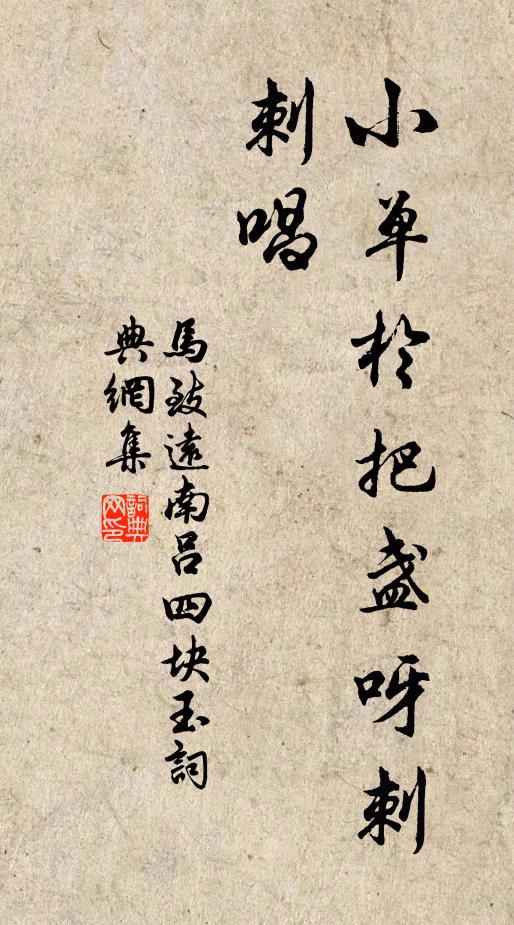 小单於把盏呀刺
刺唱
馬致遠南吕四块玉詞
典網集
詞典網印